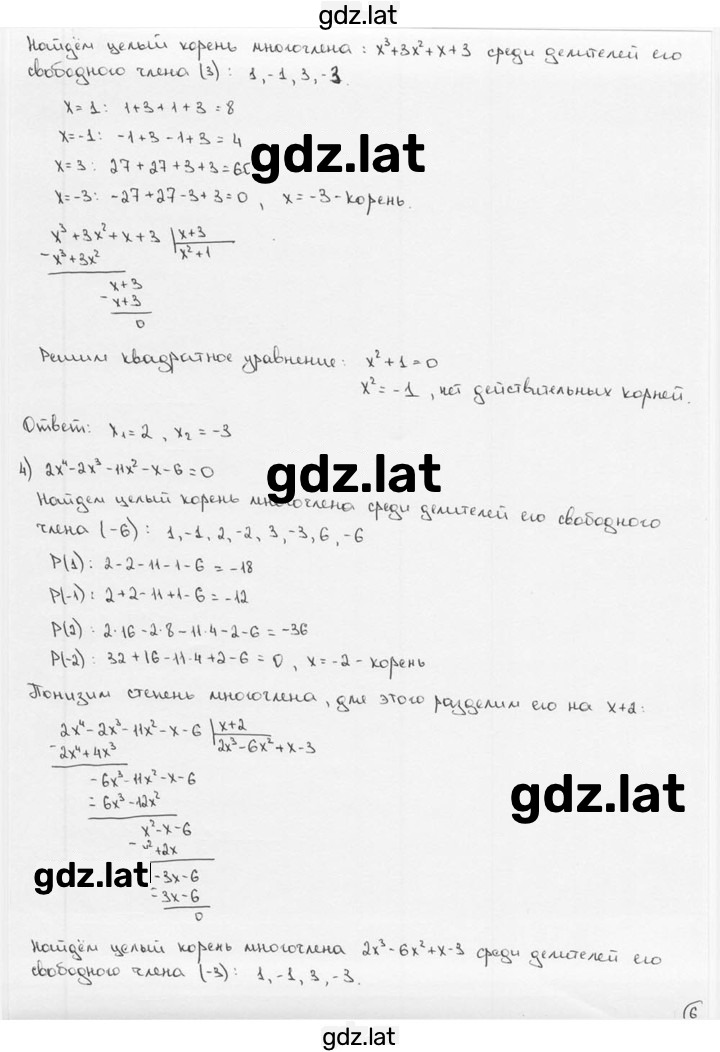 gdz.lat
Найдём целый корень многочлена: x³+3x²+x+3 среди делителей его
свободного члена (3): 1, -1, 3, -3.
x=1: 1+3+1+3=8
x=-1: -1+3-1+3=4
gdz.lat
x=3: 27+27+3+3=60
x=-3: -27+27-3+3=0, x=-3-корень.
x³+3x²+x+3 | x+3
- x³+3x² x²+1
x+3
- x+3
0
Решим квадратное уравнение: x²+1=0
x²=-1, нет действительных корней.
Ответ: x₁=2, x₂=-3
gdz.lat
4) 2x⁴-2x³-11x²-x-6=0
Найдем целый корень многочлена среди делителей его свободного
члена (-6): 1, -1, 2, -2, 3, -3, 6, -6
P(1): 2-2-11-1-6=-18
P(-1): 2+2-11+1-6=-12
P(2): 2·16-2·8-11·4-2-6=-36
P(-2): 32+16-11·4+2-6=0, x=-2-корень
Понизим степень многочлена, для этого разделим его на x+2:
2x⁴-2x³-11x²-x-6 | x+2
- 2x⁴+4x³ 2x³-6x²+x-3
-6x³-11x²-x-6
- -6x³-12x²
gdz.lat
x²-x-6
- x²+2x
gdz.lat
-3x-6
- -3x-6
0
Найдём целый корень многочлена 2x³-6x²+x-3 среди делителей его
свободного члена (-3): 1, -1, 3, -3.
6
gdz.lat